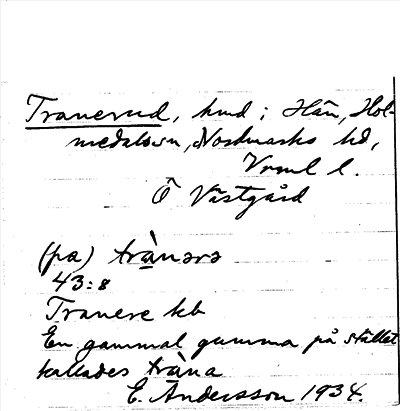 Tranerud, hmd; Hån, Hol-
medals sn, Nordmarks hd,
Vrml l.
Ö Västgård
(pa) trànərə
43:8
Tranere kb
En gammal gumma på stället
kallades tràna
E. Andersson 1934.